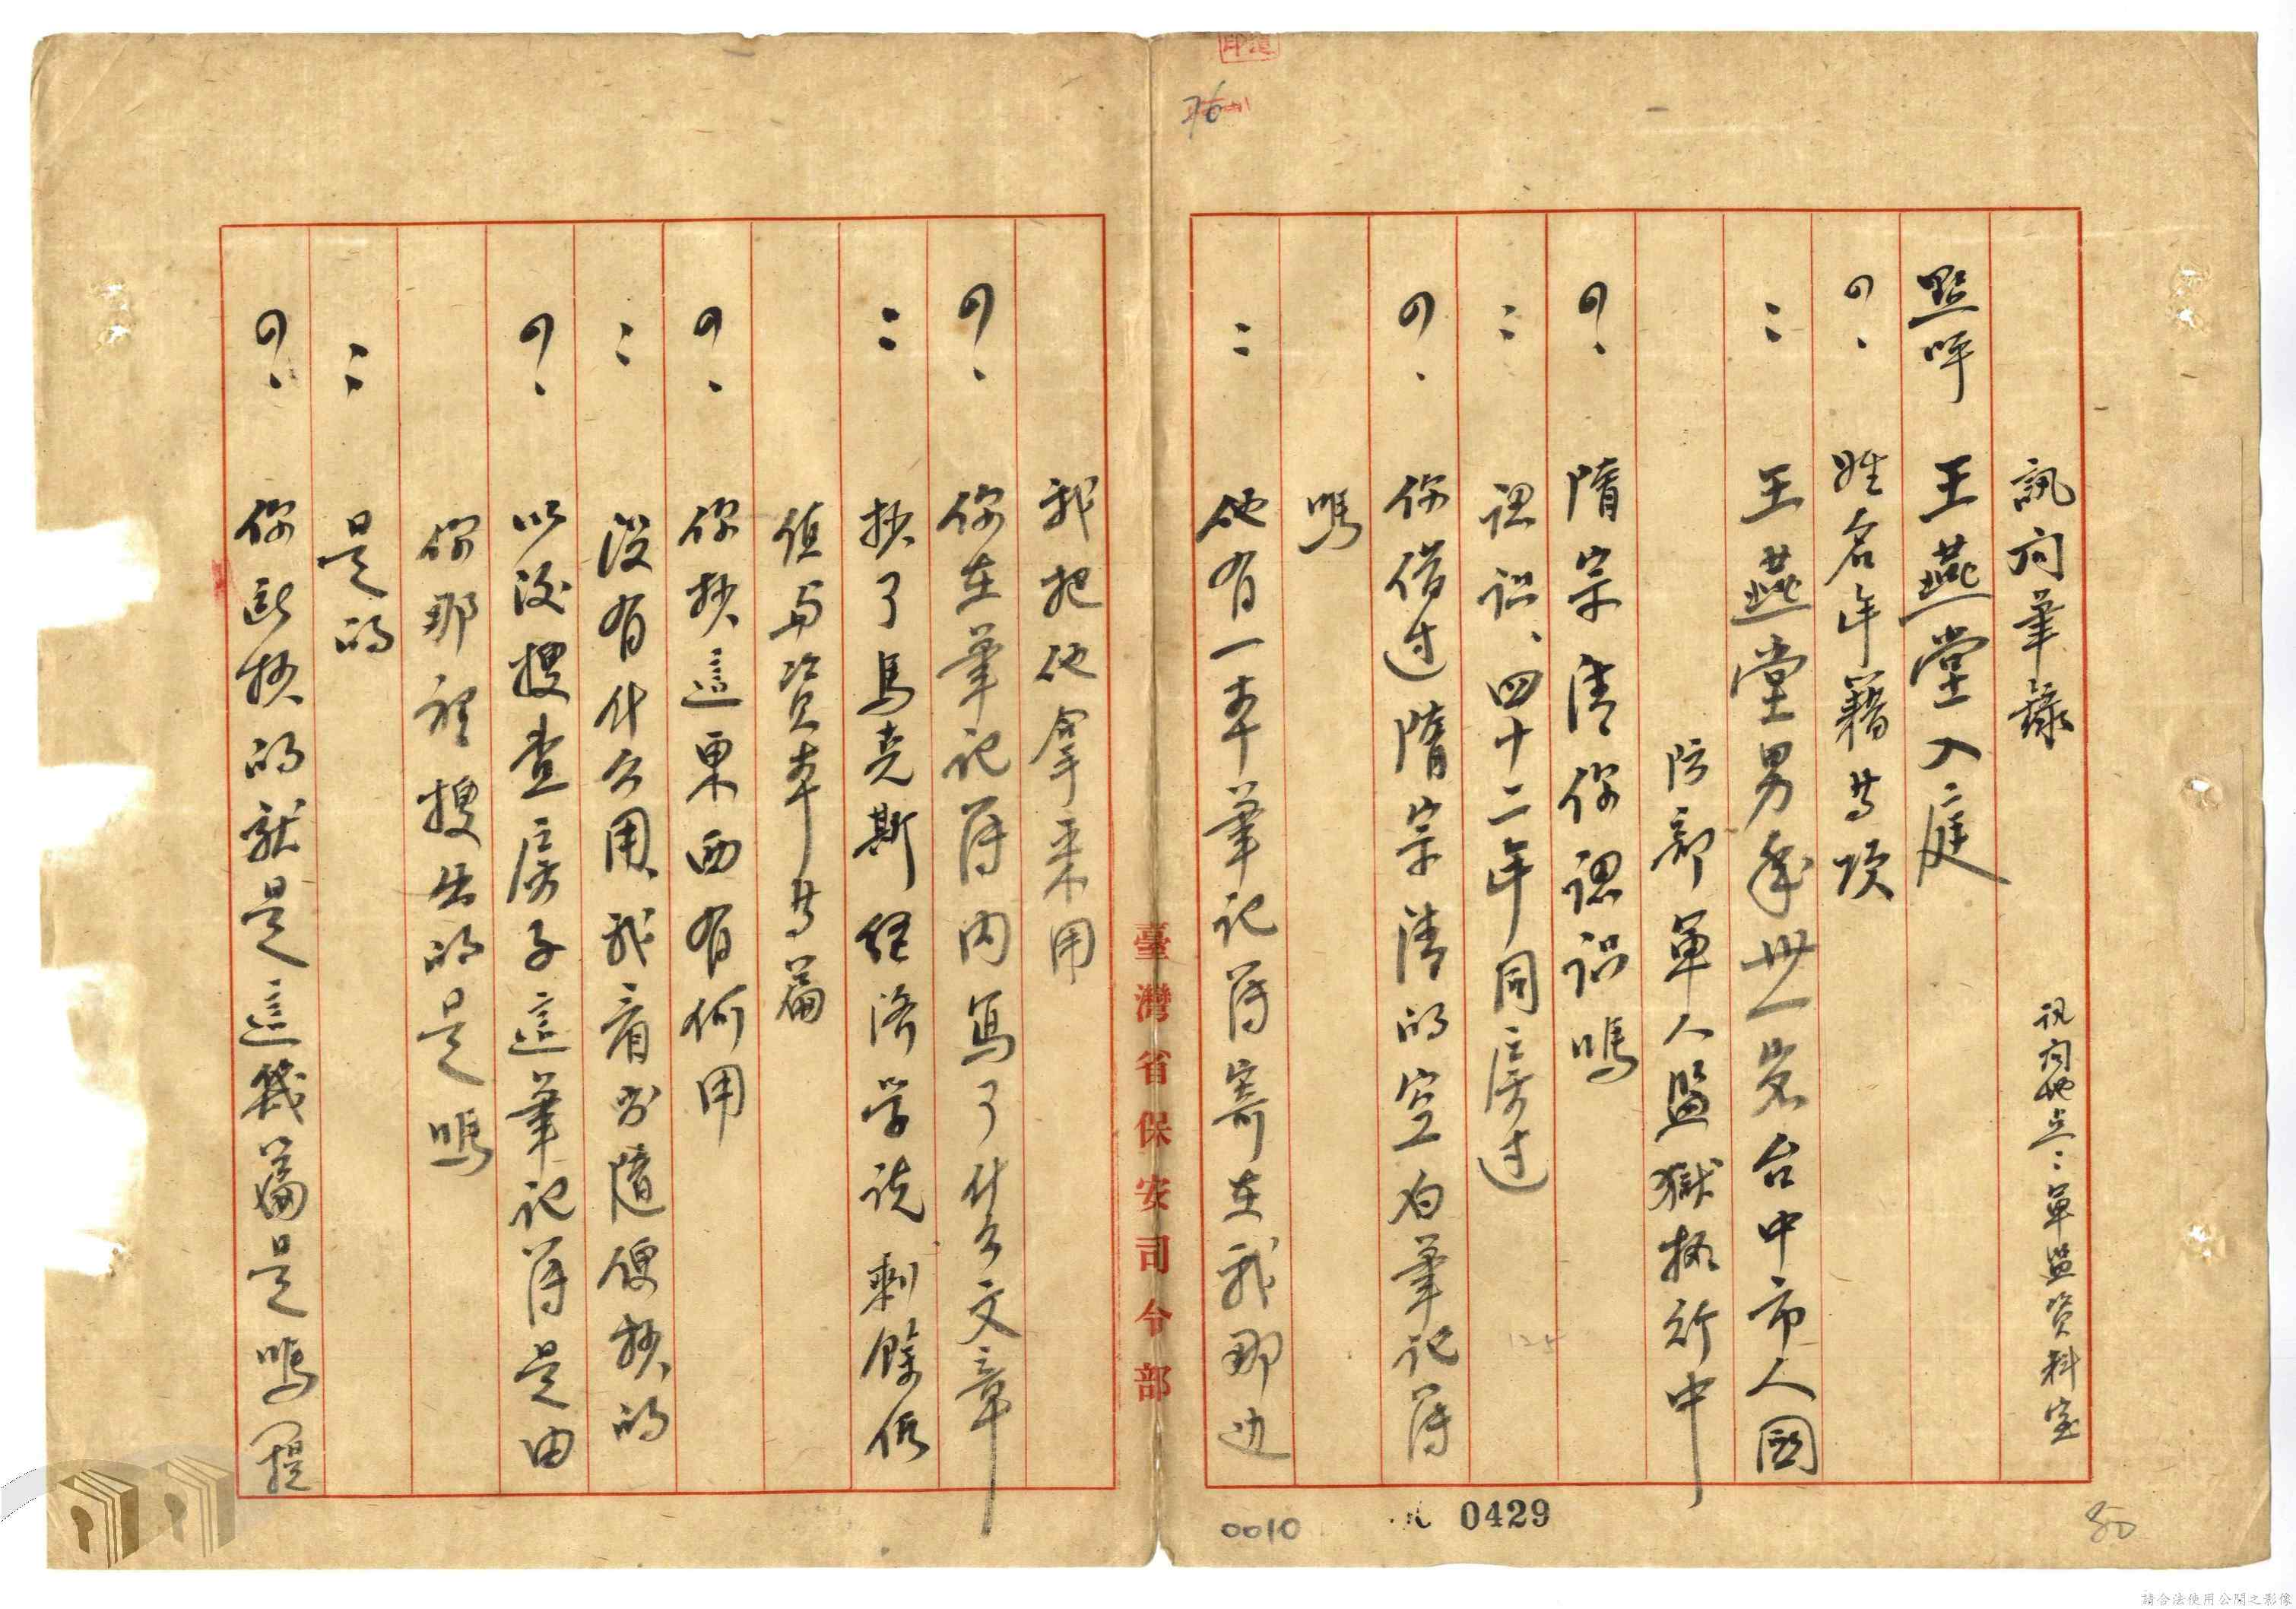 訊问筆錄
訊问地点：軍監資料室
點呼　王燕堂入庭
？姓名年籍等項
：王燕堂男年卅一岁台中市人國
防部軍人監獄执行中
？隋宗清你認识嗎
：認识、四十二年同房过
？你借过隋宗清的空白筆記簿
嗎
：他有一本筆記簿寄在我那边
臺灣省保安司令部
我把他拿来用
？你在筆記簿内写了什么文章
：抄了馬克斯经济学说、剩餘価
值与資本等篇
？你抄這東西有何用
：没有什么用、我看书随便抄的
？以後搜查房子這筆記簿是由
你那裡搜出的是嗎
：是的
？你所抄的就是這幾篇是嗎（提
76
0010
0429
80
請合法使用公開之影像